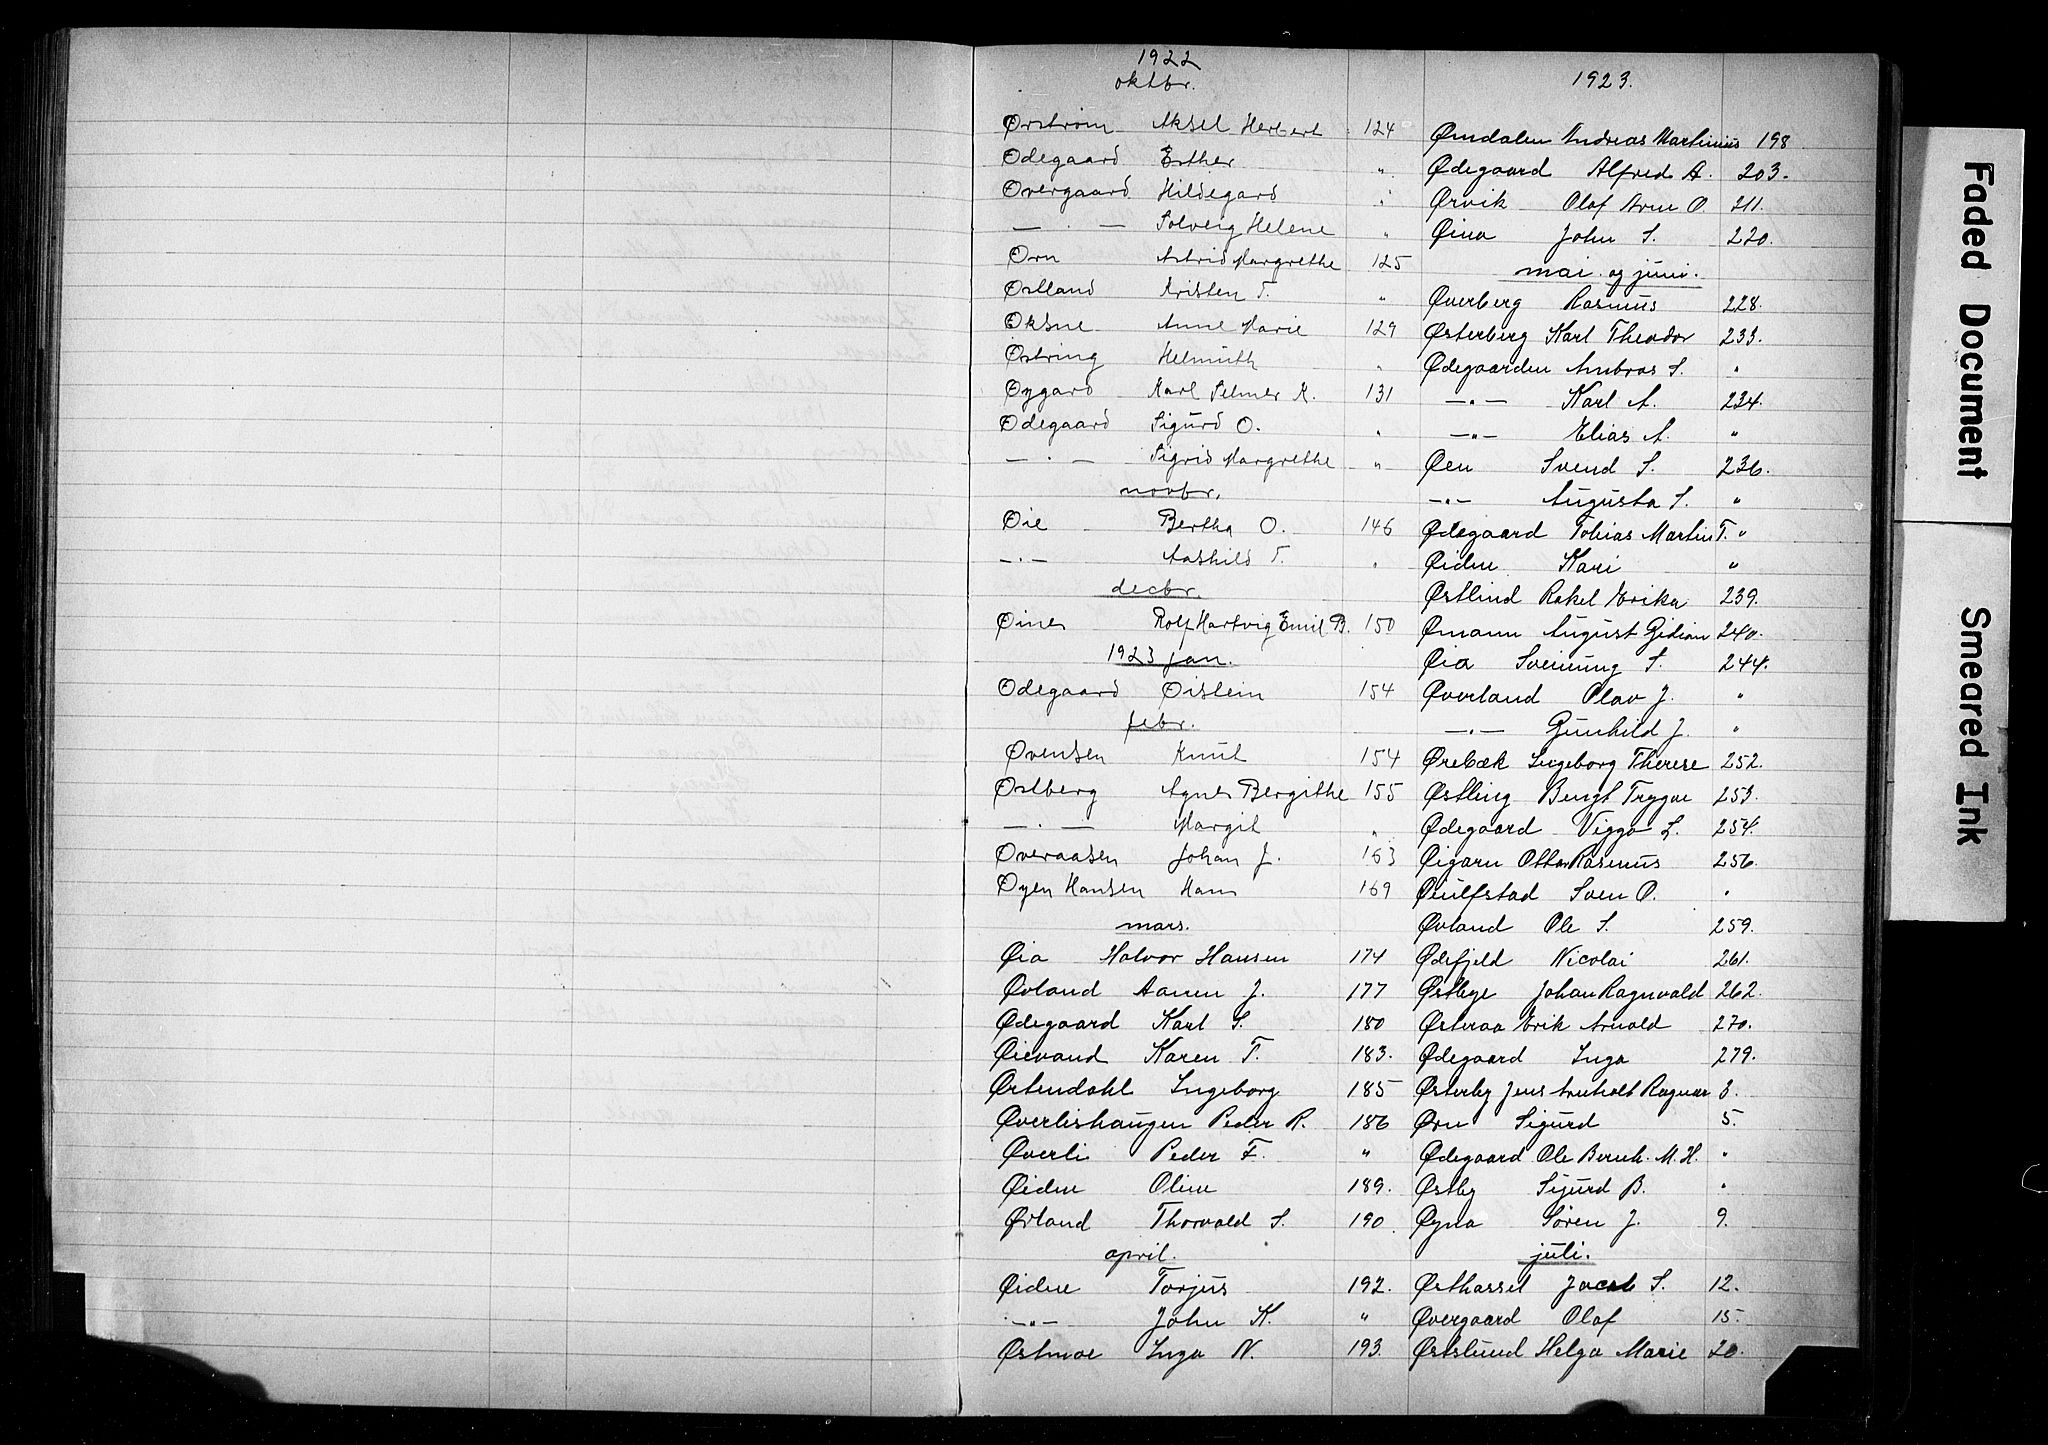 1922
oktbr.
Ørstrøm Aksel Herbert 124
Ødegaard Esther "
Øvergaard Hildegard "
— . — Solveig Helene "
Ørn Astrid Margrethe 125
Østland Kristen T. "
Øksne Anne Marie 129
Østring Helmuth "
Øygard Karl Selmer K. 131
Ødegaard Sigurd O. "
— . — Sigrid Margrethe "
novbr.
Øie Bertha O. 146
— . — Aashild T. "
decbr.
Øines Rolf Hartvig Emil B. 150
1923 jan.
Ødegaard Øistein 154
febr.
Øvensen Knut 154
Østberg Agnes Bergithe 155
— . — Margit "
Øveraasen Johan J. 163
Øyen Hansen Hans 169
mars.
Øia Halvor Hansen 174
Øvland Aanen J. 177
Ødegaard Karl S. 180
Øievand Karen T. 183.
Østendahl Ingeborg 185
Øverlishaugen Peder R. 186
Øverli Peder F. "
Øidne Oline 189.
Øvland Thorvald S. 190
april.
Øidne Torjus 192.
— " — John K. "
Østmoe Inga N. 193.
1923.
Ømdalen Andreas Martinius 198
Ødegaard Alfred A. 203.
Ørvik Olaf Arne O. 211.
Øina John S. 220.
mai og juni.
Øverberg Rasmus 228.
Østerberg Karl Theodor 233.
Ødegaarden Ambros S. "
— " — Karl A. 234.
— " — Elias A. "
Øen Svend S. 236.
— " — Augusta S. "
Ødegaard Tobias Martin T. "
Øidne Kari "
Østlind Rakel Erika 239.
Ømann August Gidion 240.
Øia Sveinung S. 244.
Øverland Olav J. "
— " — Gunhild J. "
Ørebæk Ingeborg Therese 252.
Østling Bengt Trygve 253.
Ødegaard Viggo L. 254.
Øigarn Otto Rasmus 256.
Øiulfstad Sven O. "
Øvland Ole S. 259.
Ødsfjeld Nicolai 261.
Østbye Johan Ragnvald 262.
Østeraa Erik Arnold 270.
Ødegaard Inga 279.
Østerby Jens Arnholt Ragnar 3.
Ørn Sigurd 5.
Ødegaard Ole Bernh. M. H. "
Østby Sigurd B. "
Øyna Søren J. 9.
juli.
Østhassel Jacob S. 12.
Øvergaard Olaf 15.
Østslund Helga Marie 20.
Faded Document
Smeared Ink